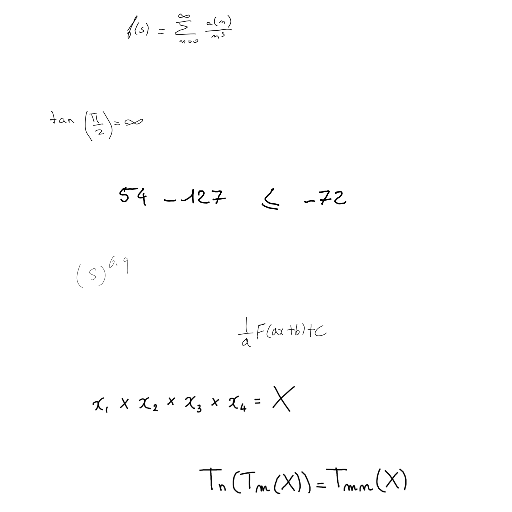 f(s) = \sum_{n=0}^{\infty} \frac{a(n)}{n^s}
tan (\frac{\pi}{2}) = ∞
54 - 127 ≤ -72
(s)^{6.9}
\frac{1}{a} F(ax+b)+C
x_1 × x_2 × x_3 × x_4 = X
T_n(T_m(X)) = T_{mn}(X)